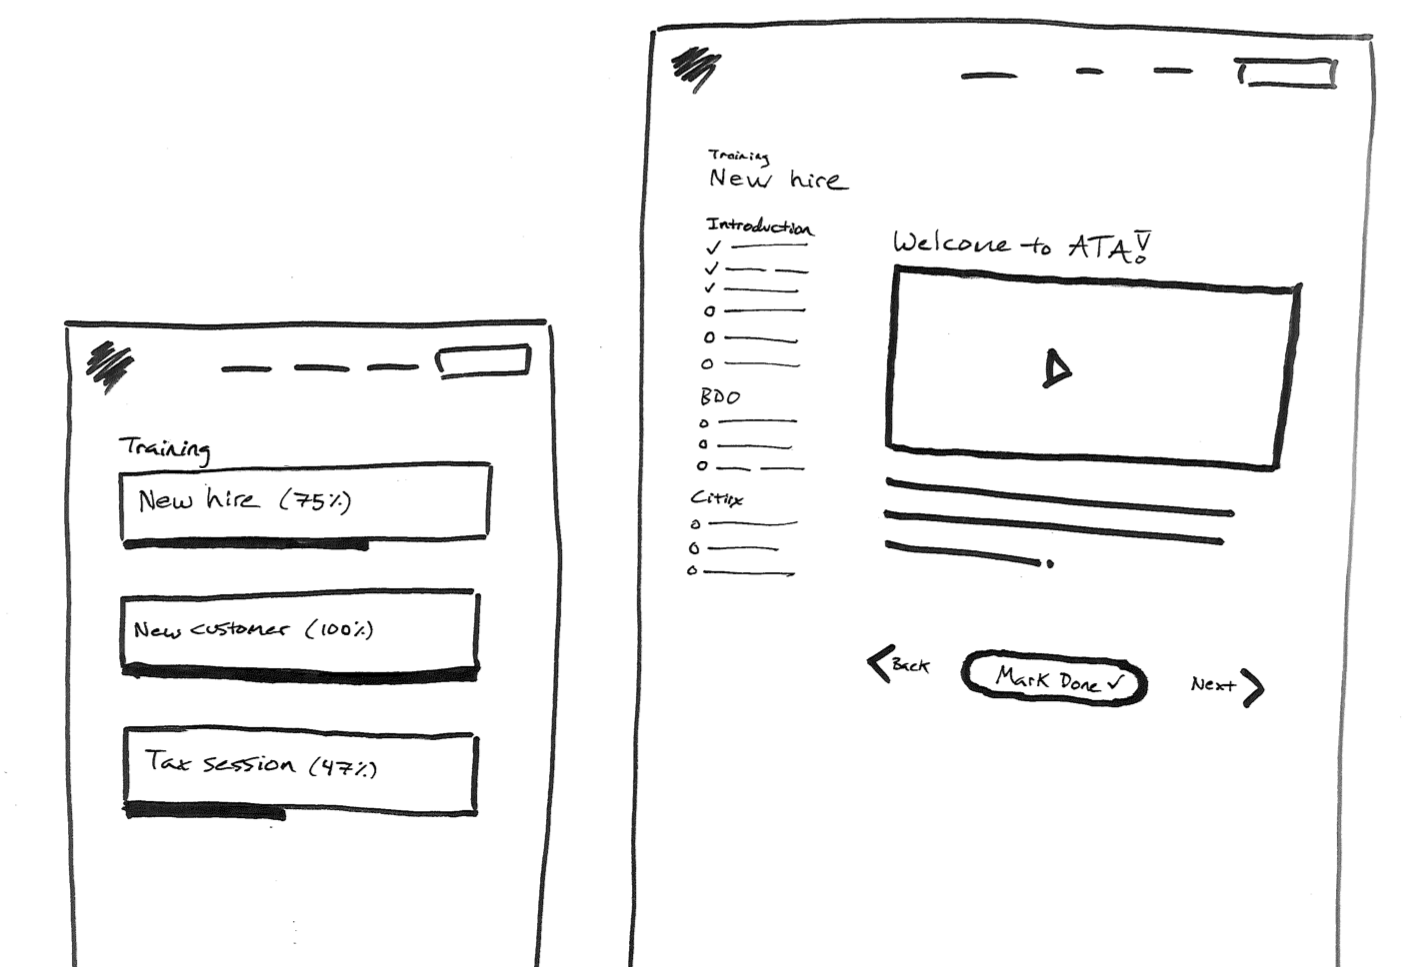 Training
New hire (75%)
New customer (100%)
Tax session (47%)
Training
New hire
Introduction
BDO
Citrix
Welcome to ATA!
Back
Mark Done ✓
Next